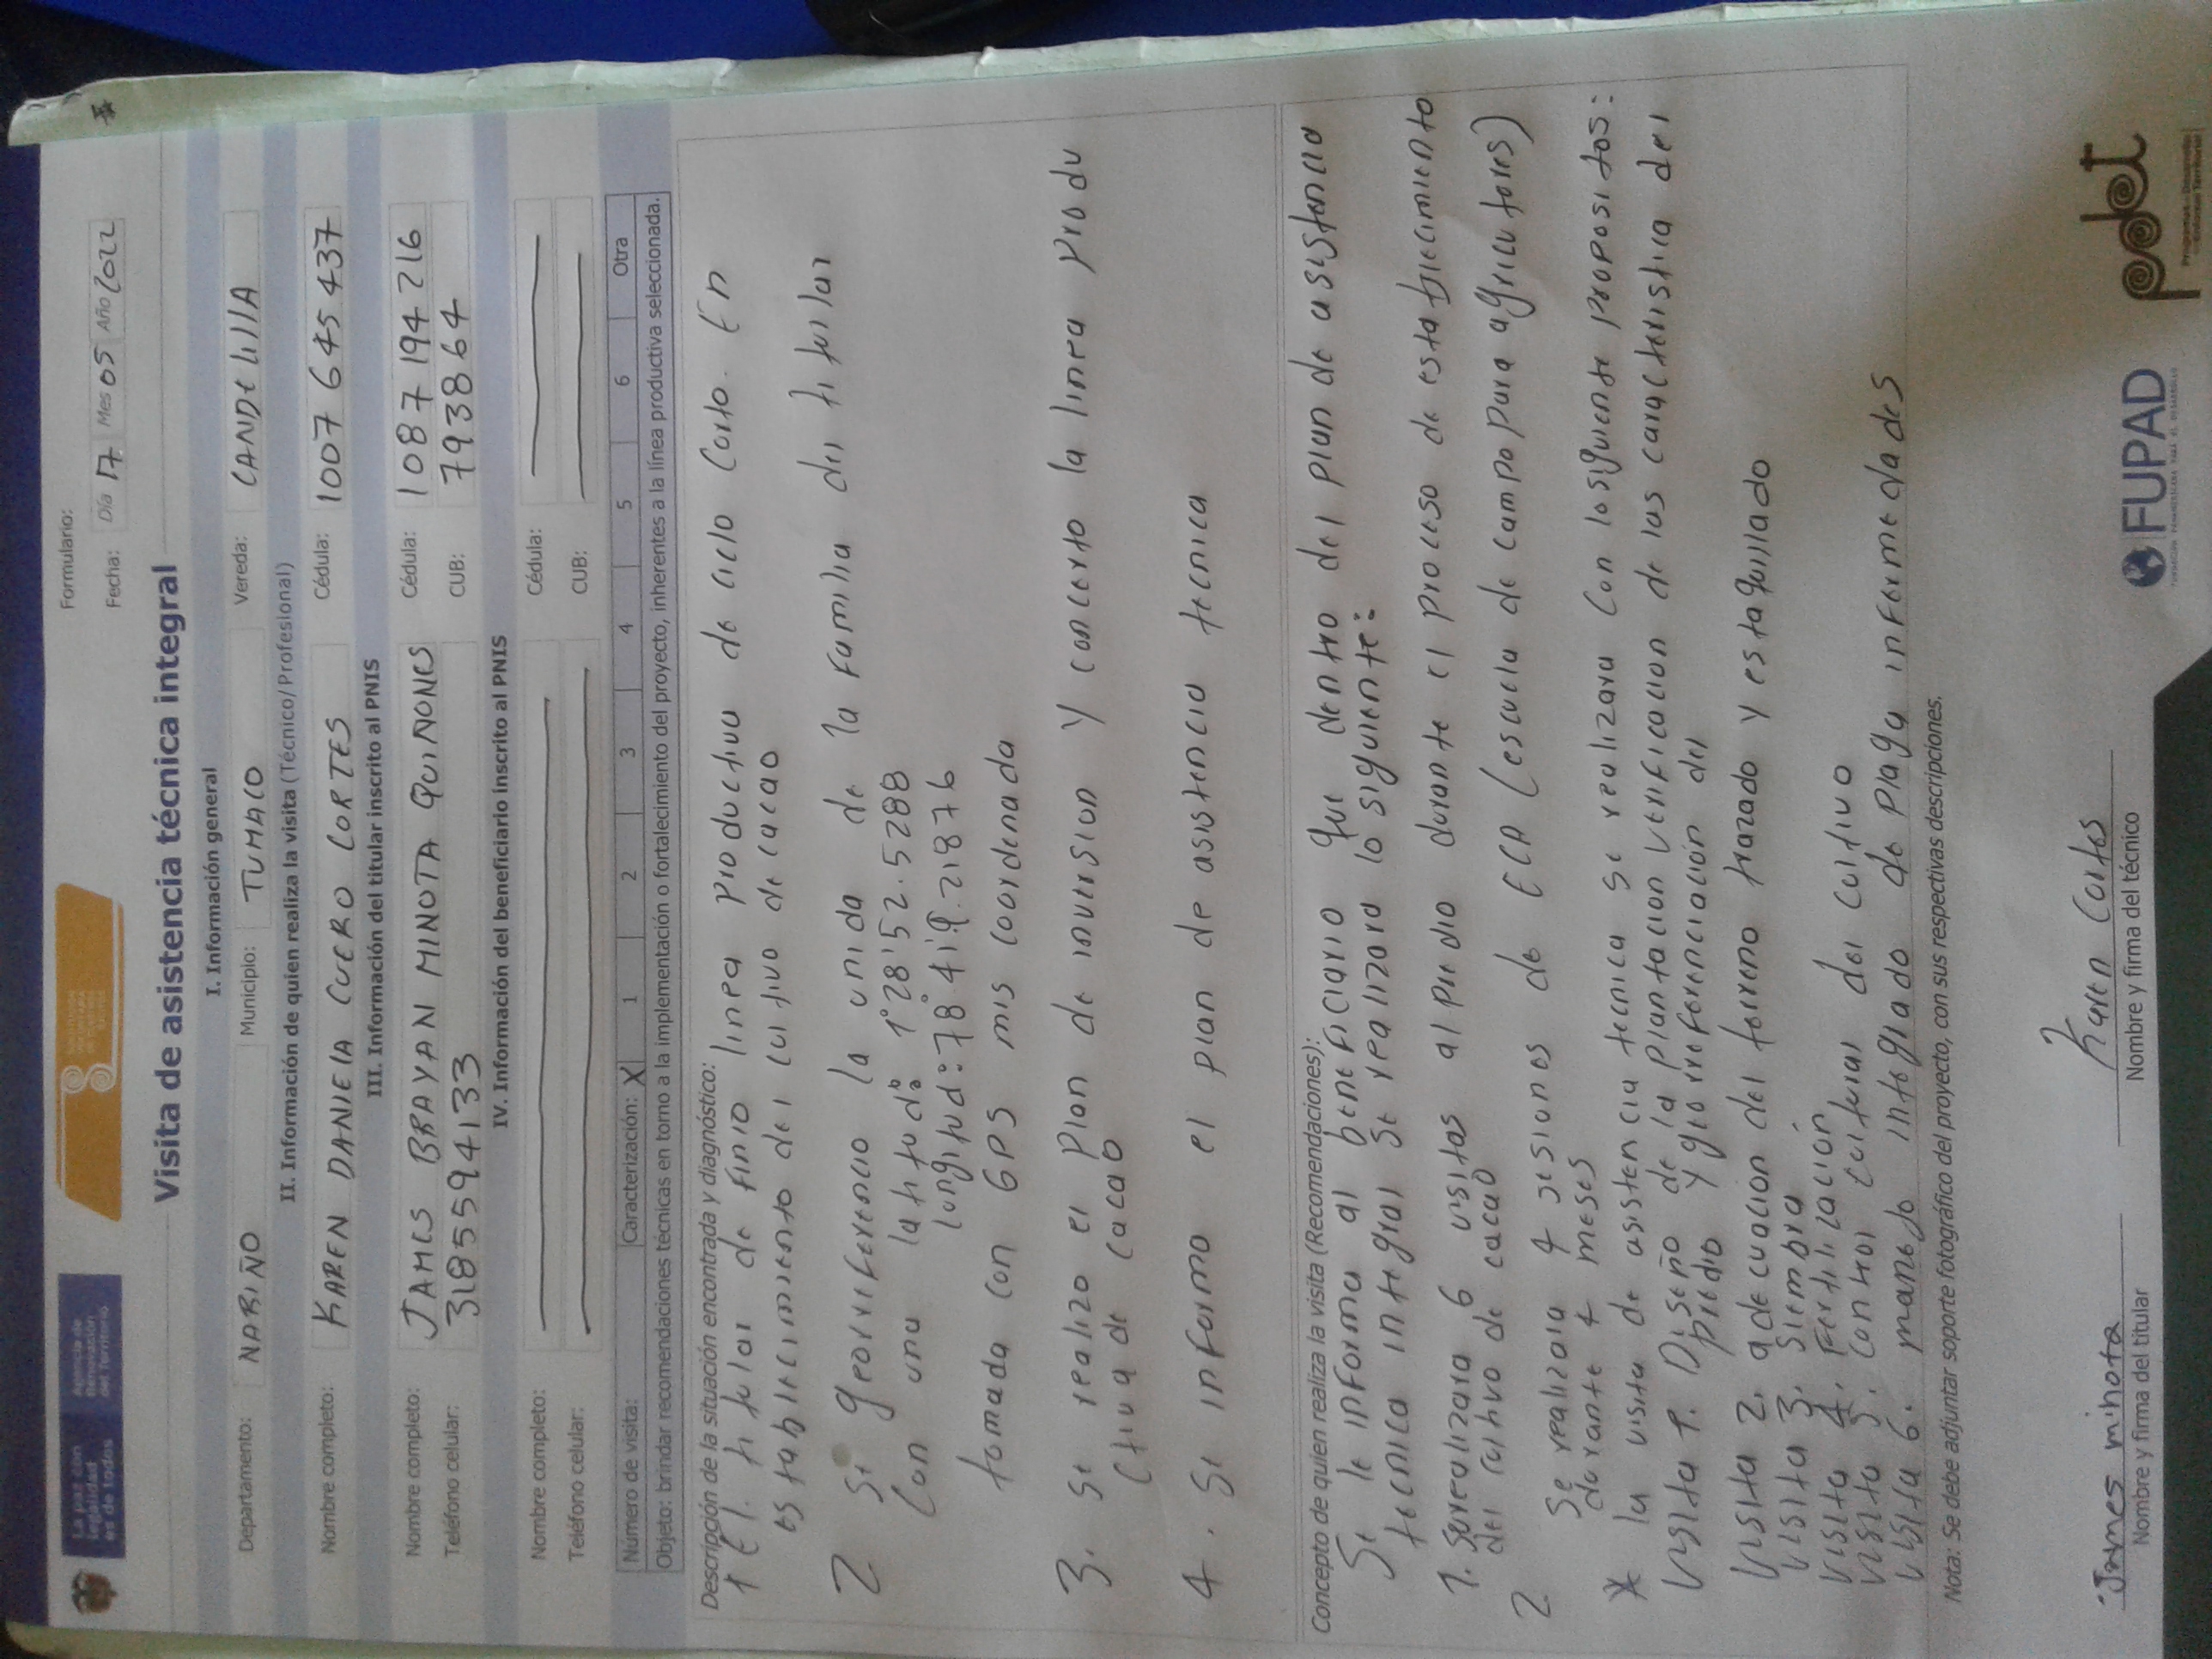 La paz con
legalidad
es de todos
Agencia de
Renovación
del Territorio
Formulario:
Fecha: Día 17 Mes 05 Año 2022
Visita de asistencia técnica integral
I. Información general
Departamento: NARIÑO Municipio: TUMACO Vereda: CANDELILLA
II. Información de quien realiza la visita (Técnico/Profesional)
Nombre completo: KAREN DANIELA CUERO CORTES Cédula: 1007645437
III. Información del titular inscrito al PNIS
Nombre completo: JAMES BRAYAN MINOTA QUIÑONES Cédula: 1087194216
Teléfono celular: 3185594133 CUB: 793864
IV. Información del beneficiario inscrito al PNIS
Nombre completo: Cédula:
Teléfono celular: CUB:
Número de visita: Caracterización: X 1 2 3 4 5 6 Otra
Objeto: brindar recomendaciones técnicas en torno a la implementación o fortalecimiento del proyecto, inherentes a la línea productiva seleccionada.
Descripción de la situación encontrada y diagnóstico:
1 El titular de finio linea productiva de ciclo Corto. En
establecimiento del cultivo de cacao
2 Se georreferencio la unida de la familia del titular
Con una latitud: 1°28'52.5288
longitud: 78°41'9.21876
tomada con GPS mis coordenada
3. Se realizo el Plan de inversion y concerto la linea produ
ctiva de cacao
4. Se informo el plan de asistencia tecnica
Concepto de quien realiza la visita (Recomendaciones):
Se le informa al beneficiario que dentro del plan de asistencia
tecnica integral se realizara lo siguiente:
1. Se realizara 6 visitas al predio durante el proceso de establecimiento
del cultivo de cacao
2 Se realizara 4 sesiones de ECA (escuela de campo para agricutores)
durante 4 meses
* la visita de asistencia tecnica se realizara Con los siguiente propositos:
Visita 1. Diseño de la plantacion verificacion de las caracteristica del
predio y georreferenciación del
Visita 2. adecuacion del terreno trazado y estaquillado
Visita 3. Siembra
Visita 4. Fertilización
Visita 5. Control cultural del cultivo
Visita 6. manejo integrado de plaga informedades
Nota: Se debe adjuntar soporte fotográfico del proyecto, con sus respectivas descripciones.
James minota
Nombre y firma del titular
Karen Cortes
Nombre y firma del técnico
FUPAD
pdet